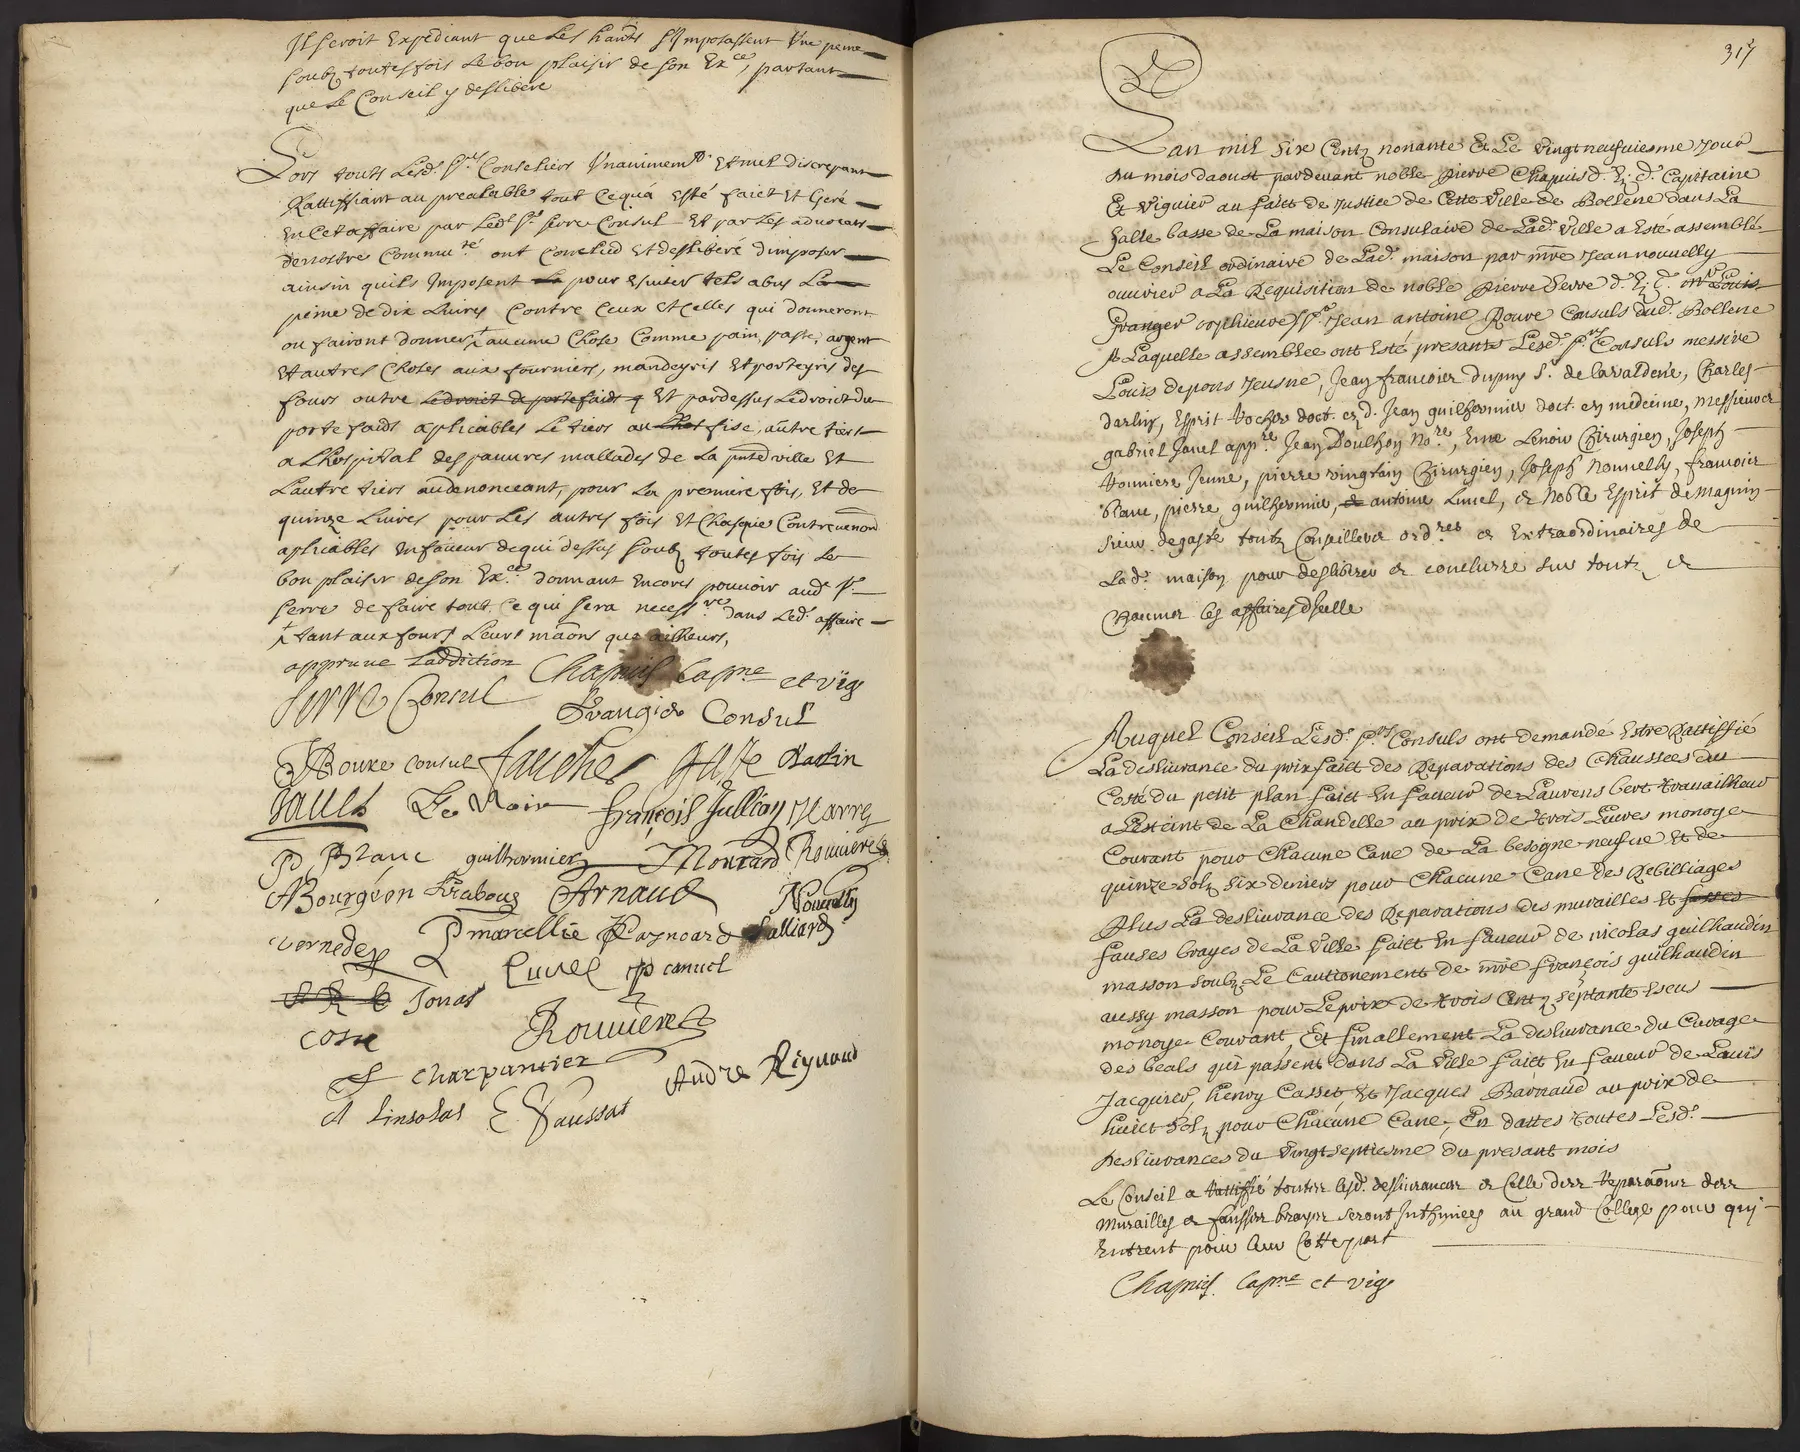 Il seroit Expediant que Les hãnts s'Imposassent Une peine
soubz toutesfois Le bon plaisir de son Ex.ce, partant
que Le Conseil y deslibere
Lors touts Lesd. s.rs Conseliers Unanimem.t Et nul discrepant
Rattiffiant au prealable tout Ce qu'a Esté faict Et Geré
En Cet affaire par Led.t s.r serre Consul Et par Les advocats
de nostre Commu.té ont Conclud Et deslibéré d'imposer
ainsin qu'ils Imposent La pour Esuiter tels abus La
peine de dix Livres Contre Ceux Et Celles qui donneront
ou fairont donner + aucune Chose Comme pain, paste, argent
Et autres Choses aux fourniers, mandeyris Et porteyris des
fours outre Le droit de portefaids q Et pardessus Le droict du
porte faids aplicables Le tiers au fisc, autre tiers
a L'hospital des pauures mallades de La pnte ville Et
L'autre tiers au denonceant, pour La premiere fois, Et de
quinze Liures pour Les autres fois Et Chasque Contreuenon
aplicables En faueur de qui dessus soubz toutes fois Le
bon plaisir de son Ex.ce donnant Encores pouuoir aud.t s.r
serre de faire tout Ce qui sera necess.re dans Led. affaire
+ tant aux fours Leurs mãons que ailleurs,
appruue L'addition
Serre Consul Chapuis Cap.ne et vig
Grangier Consul
J Roure Consul faucher Juste Martin
Le Noir françois Jullian
P Blanc guilhermier Mourard Rouuiere
A Bourgeon Trabouc Arnaud Nouuelly
Vernede P marcellie Raynoard
Lunel canuel
Jonas
Coste Rouuiere
J Charpantier
André Reynaud
A Linsolas E Faussat
317
L'an mil six Centz nonante Et Le vingt neufuiesme Jour
du mois daoust pardeuant noble pierre Chapuis d. E. d. Capitaine
Et Viguier au faict de Justice de Cette Ville de Bollene dans La
salle basse de La maison Consulaire de Lad. ville a Esté assemblé
Le Conseil ordinaire de Lad. maison par mre Jean nouuelly
ouurier a La Requisition de noble pierre serre d. E. d. Louis
Granger orphieure s.r Jean antoine Roure Consuls dud. Bollene
A Laquelle assemblee ont Esté presants Lesd. s.rs Consuls messire
Louis de pons Jeusne, Jean francois dupuy s.r de Lavaldene, Charles
darlis, Esprit doct. Jean guilhermier doct. en medecine, Messieurs
gabriel Janel app.re Jean Doulhon No.re, Lenoir Chirurgien, Joseph
Rouuiere Jeune, pierre vingtain Chirurgien, Joseph Nouuelly, francois
Blanc, pierre guilhermier, de antoine Lunel, & Noble Esprit de Magnin
sieur de gaste toutz Conseillers ord.res & Extraordinaires de
Lad. maison pour deslibérer & conclurre sur toutz &
Chacunes les affaires d'icelle
Auquel Conseil Lesd. s.rs Consuls ont demandé Estre Rattiffié
La desliurance du prixfaict des Reparations des Chaussees du
Costé du petit plan faict En faueur de Laurens bert trauailheur
a L'esteint de La Chandelle au prix de trois Liures monoye
Courant pour Chacune Cane de La besogne neufue Et de
quinze solz six deniers pour Chacune Cane des Rebilliages
Plus La desliurance des Reparations des murailles Et fosses
fauses brayes de La ville faict En faueur de nicolas guilhaudin
masson soubz Le Cautionement de mre françois guilhaudin
aussy masson pour Le prix de trois Centz septante Escus
monoye Courant, Et finallement La desliurance du Curage
des beals qui passent dans La ville faict En faueur de Louis
Jacquier, henry Casset Et Jacques Barnaud au prix de
huict solz pour Chacune Cane, En dattes toutes Lesd.
Desliurances du vingt septiesme du presant mois
Le Conseil a rattiffié toutes lesd. desliurances & Celle des reparaõns des
Murailles & fausses brayes seront Inthimées au grand College pour qu'il
Entrent pour leur Cotte part
Chapuis Cap.ne et vig